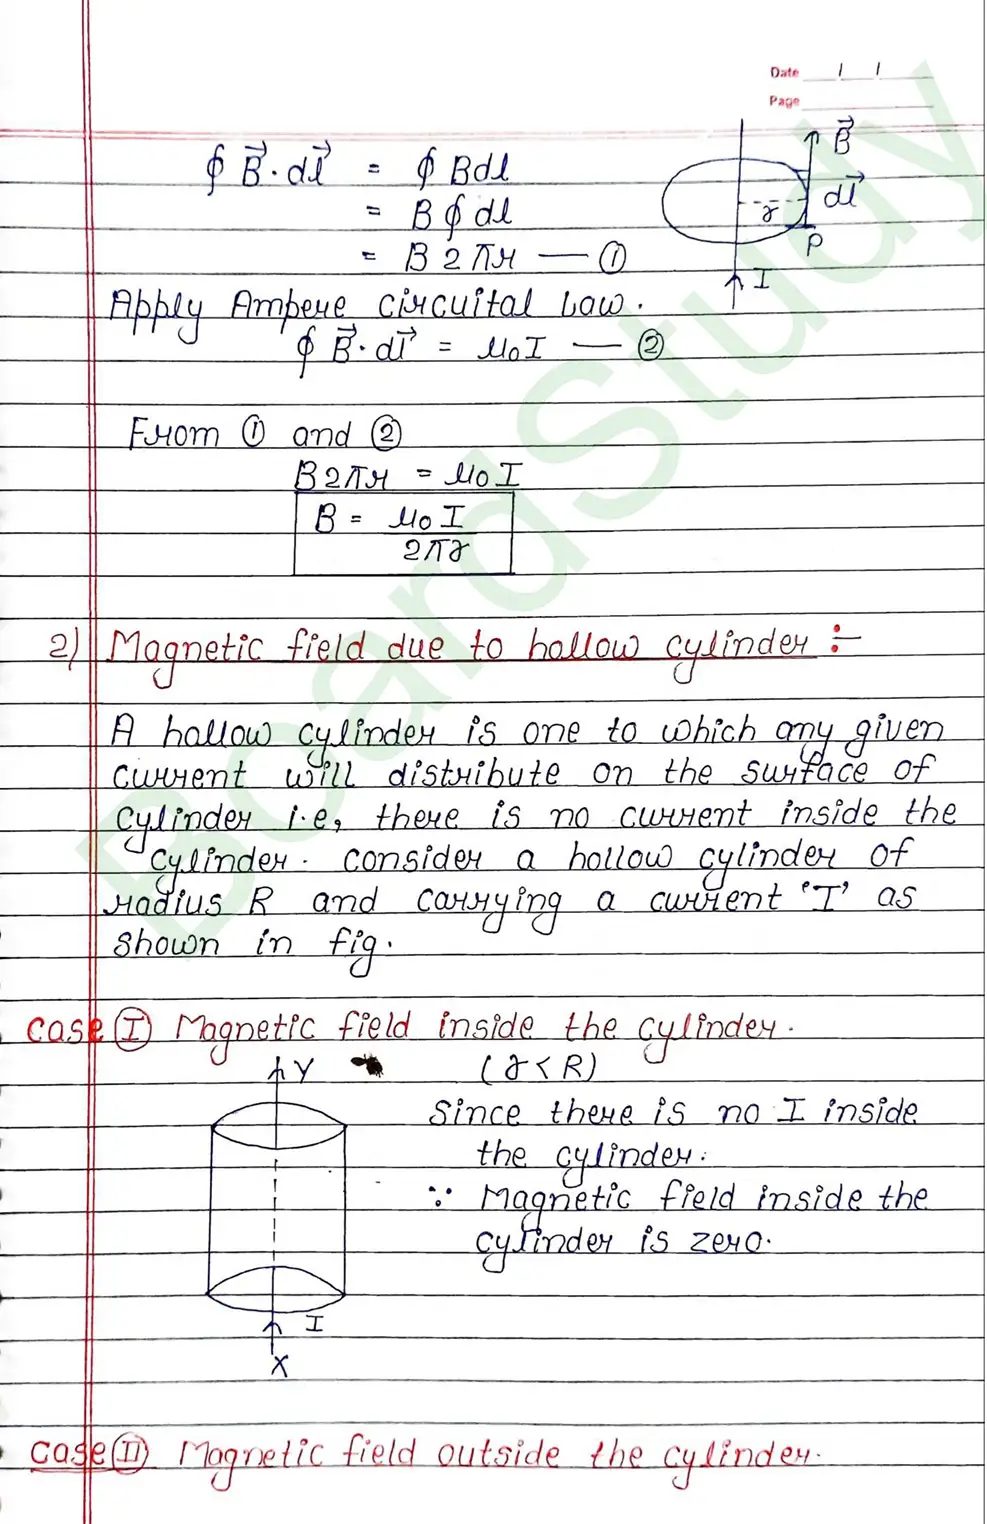 Date / /
Page
∮ B⃗·dl⃗ = ∮ Bdl
= B ∮ dl
= B 2πr — ①
B⃗
dl⃗
r
P
I
Apply Ampere circuital Law.
∮ B⃗·dl⃗ = μ₀I — ②
From ① and ②
B2πr = μ₀I
B = μ₀I
2πr
2) Magnetic field due to hollow cylinder :-
A hollow cylinder is one to which any given
current will distribute on the surface of
cylinder i.e, there is no current inside the
cylinder. consider a hollow cylinder of
radius R and carrying a current 'I' as
shown in fig.
case (I) Magnetic field inside the cylinder.
Y
(r < R)
Since there is no I inside
the cylinder.
∵ Magnetic field inside the
cylinder is zero.
I
X
case (II) Magnetic field outside the cylinder.
BoardStudy